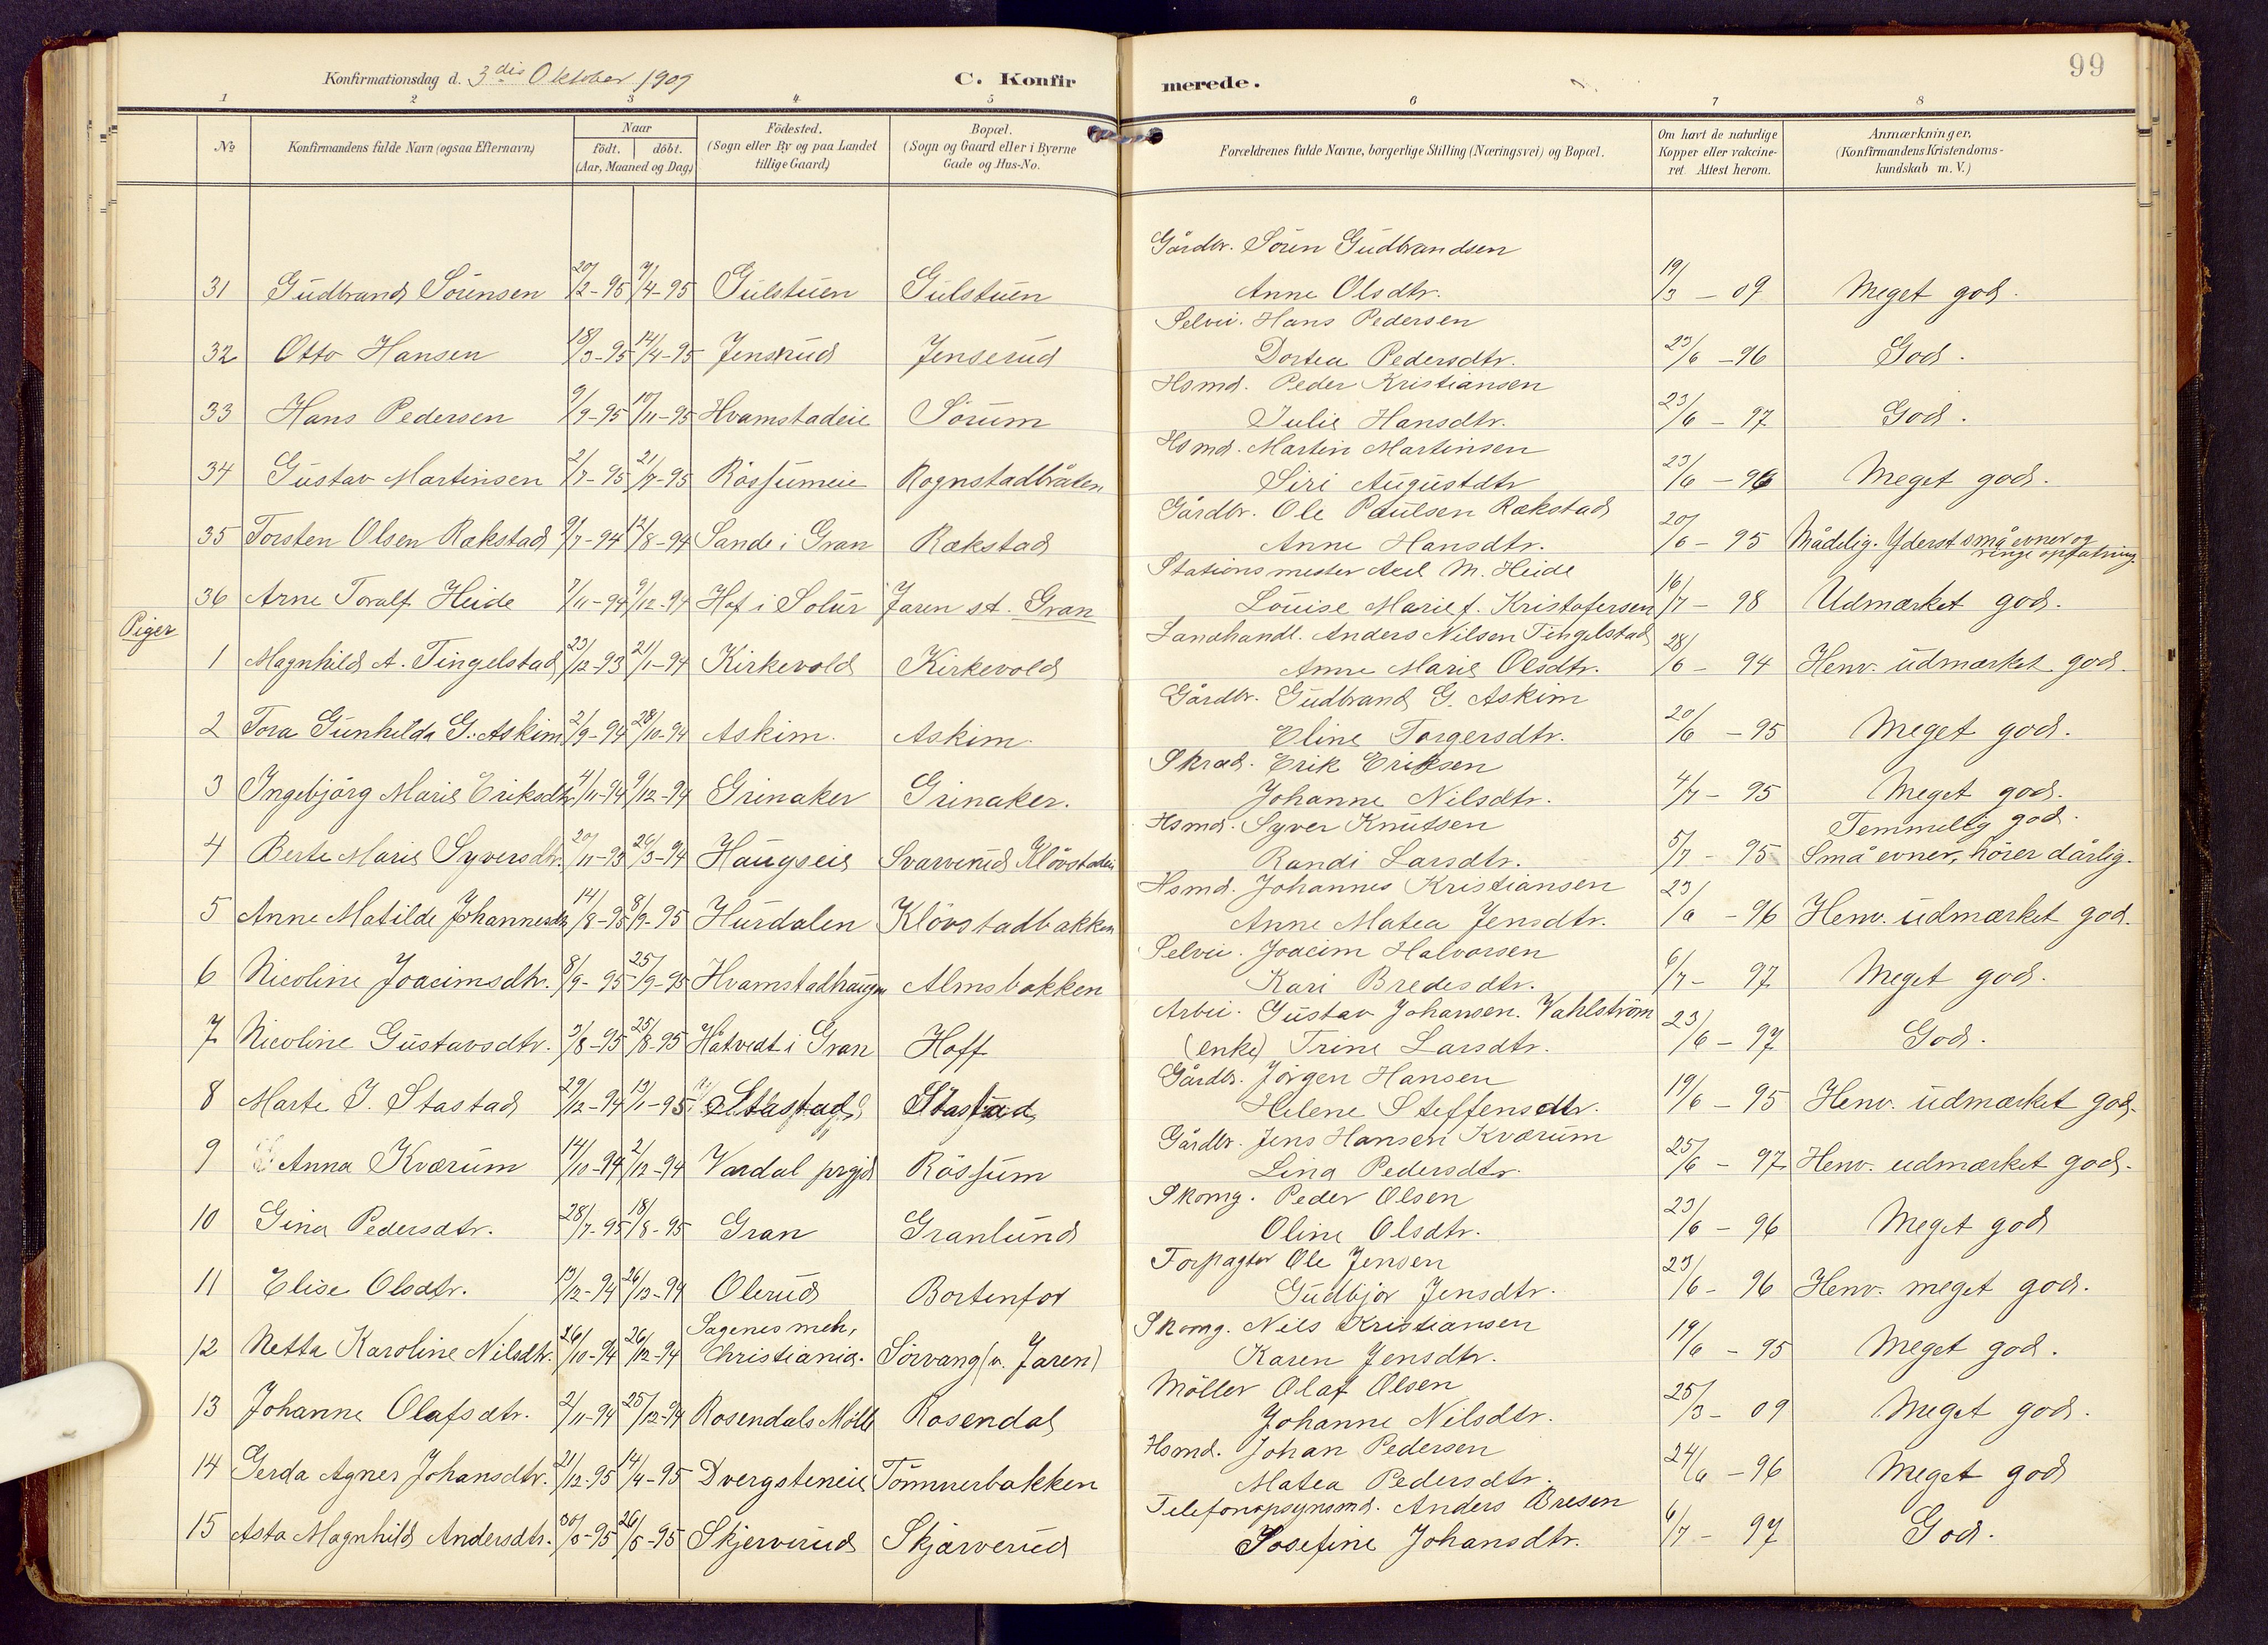 99
Konfirmationsdag d. 3die Oktober 1909
C. Konfirmerede.
1 2 3 4 5 6 7 8
No
Konfirmandens fulde Navn (ogsaa Efternavn)
Naar
födt. döbt.
(Aar, Maaned og Dag)
Födested.
(Sogn eller By og paa Landet
tillige Gaard)
Bopæl.
(Sogn og Gaard eller i Byerne
Gade og Hus-No.
Forældrenes fulde Navne, borgerlige Stilling (Næringsvei) og Bopæl.
Om havt de naturlige
Kopper eller vakcine-
ret. Attest herom.
Anmærkninger.
(Konfirmandens Kristendoms-
kundskab m. V.)
Gårdbr. Sören Gudbrandsen
31 Gudbrand Sörensen 20/2-95 7/4-95 Gulstuen Gulstuen Anne Olsdtr. 19/3 - 09 Meget god.
Selvei. Hans Pedersen
32 Otto Hansen 18/3-95 14/4-95 Jensrud Jenserud Dortea Pedersdtr. 23/6 - 96 God.
Hsmd. Peder Kristiansen
33 Hans Pedersen 9/9-95 10/11-95 Hvamstadeie Sörum Julie Hansdtr. 23/6 - 97 God.
Hsmd. Martin Martinsen
34 Gustav Martinsen 2/7-95 21/7-95 Rössumeie Rognstadbråten Siri Augustdtr 23/6 - 96 Meget god.
Gårdbr. Ole Paulsen Rækstad
35 Torsten Olsen Rækstad 9/7-94 12/8-94 Sande i Gran Rækstad Anne Hansdtr. 20/6 - 95 Mådelig. Yderst små evner og
ringe opfatning.
Stationsmester Axel M. Heide
36 Arne Toralf Heide 7/11-94 9/12-94 Hof i Solør Jaren st. Gran Louise Marie f. Kristofersen 16/7 - 98 Udmærket god.
Piger
Landhandl. Anders Nilsen Tingelstad
1 Magnhild A. Tingelstad 23/12-93 21/1-94 Kirkevold Kirkevold Anne Marie Olsdtr. 28/6 - 94 Henv. udmærket god.
Gårdbr. Gudbrand G. Askim
2 Tora Gunhilda G. Askim 2/9-94 28/10-94 Askim. Askim. Eline Torgersdtr. 20/6 - 95 Meget god.
Skræd. Erik Eriksen
3 Ingebjörg Marie Eriksdtr 4/11-94 9/12-94 Grinaker Grinaker. Johanne Nilsdtr. 4/7 - 95 Meget god.
Hsmd. Syver Knutsen Temmelig god.
4 Berte Marie Syversdtr. 20/11-93 26/3-94 Haugseie Svarverud Klövstadeie Randi Larsdtr. 5/7 - 95 Små evner, hörer dårlig.
Hsmd. Johannes Kristiansen
5 Anne Matilde Johannesdtr 14/8-95 8/9-95 Hurdalen Klövstadbakken Anne Matea Jensdtr. 23/6 - 96 Henv. udmærket god.
Selvei. Joacim Halvorsen
6 Nicoline Joacimsdtr. 8/9-95 25/9-95 Hvamstadhaugen Almsbakken Kari Bredesdtr. 6/7 - 97 Meget god.
Arbei. Gustav Johansen. Vahlström
7 Nicoline Gustavsdtr. 3/8-95 25/8-95 Håtvedt i Gran Hoff (enke) Trine Larsdtr. 23/6 - 97 God.
Gårdbr. Jörgen Hansen
8 Marte J. Stastad 29/12-94 13/1-95 Stastad Stastad Helene Steffensdtr. 19/6 - 95 Henv. udmærket god.
Gårdbr. Jens Hansen Kværum
9 Anna Kværum 14/10-94 2/12-94 Vardal prgjd Rössum Lina Pedersdtr. 25/6 - 97 Henv. udmærket god.
Skomg. Peder Olsen
10 Gina Pedersdtr. 28/7-95 18/8-95 Gran Granlund Oline Olsdtr. 23/6 - 96 Meget god
Forpagter Ole Jensen
11 Elise Olsdtr. 13/12-94 26/12-94 Olerud Bortenfor Gudbjör Jensdtr. 23/6 - 96 Henv. meget god.
Sagenes meh, Skomg. Nils Kristiansen
12 Netta Karoline Nilsdtr. 26/10-94 26/12-94 Christiania. Sörvang (v. Jaren) Karen Jensdtr. 19/6 - 95 Meget god.
Möller Olaf Olsen
13 Johanne Olafsdtr. 2/11-94 25/12-94 Rosendals Mölle Rosendal Johanne Nilsdtr. 25/3 - 09 Meget god.
Hsmd. Johan Pedersen
14 Gerda Agnes Johansdtr. 21/12-95 14/4-95 Dvergsteneie Tömmerbakken Matea Pedersdtr. 24/6 - 96 Meget god
Telefonopsynsmd. Anders Øresen
15 Asta Magnhild Andersdtr. 30/3-95 26/5-95 Skjerverud Skjærverud Josefine Johansdtr. 6/7 - 97 God.